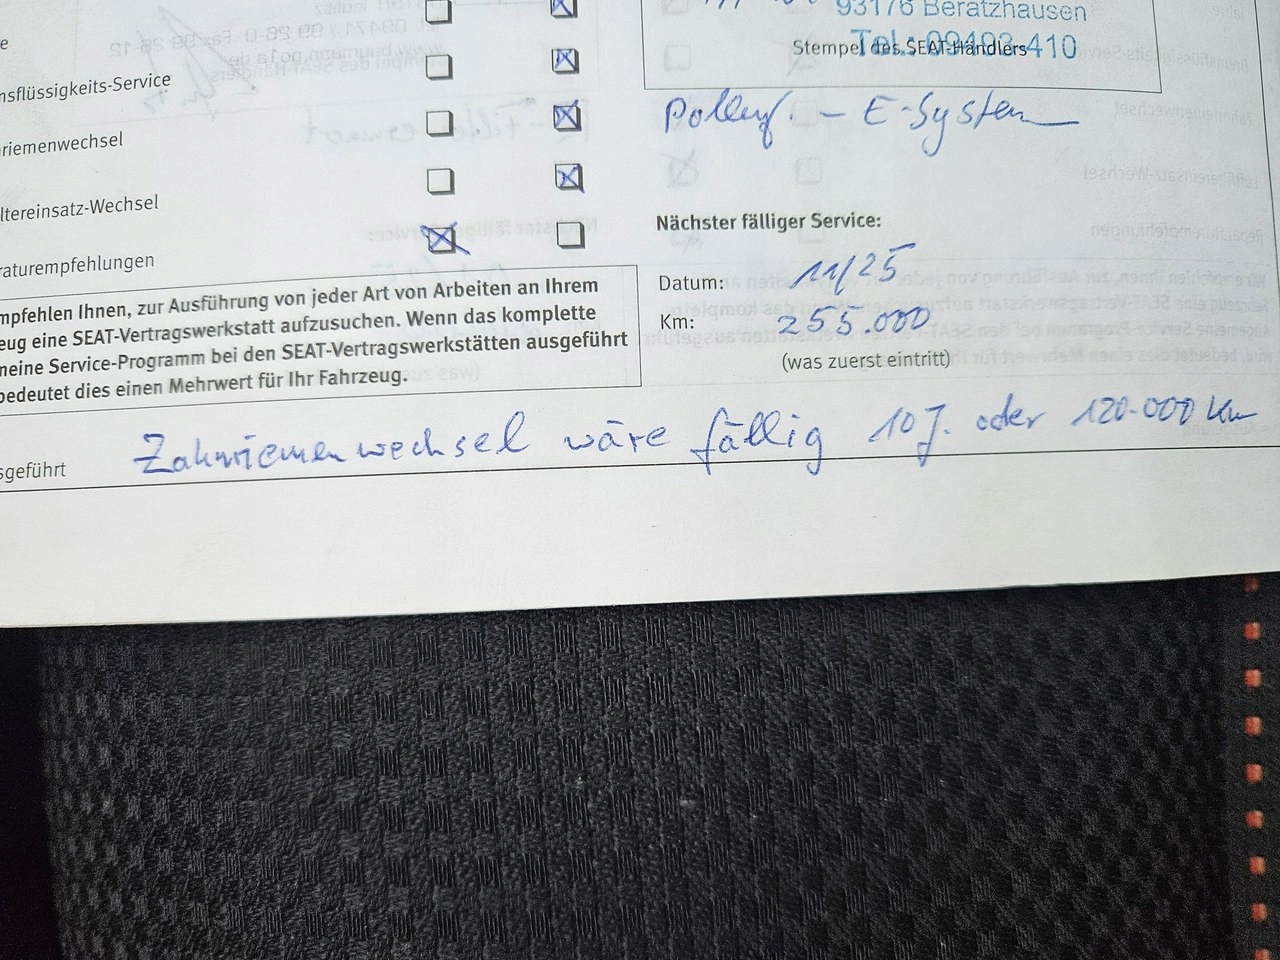 93176 Beratzhausen
Tel.: 09493-410
Stempel des SEAT-Händlers
nsflüssigkeits-Service
riemenwechsel
ltereinsatz-Wechsel
raturempfehlungen
Pollenf. – E-System
Nächster fälliger Service:
Datum: 11/25
Km: 255.000
(was zuerst eintritt)
mpfehlen Ihnen, zur Ausführung von jeder Art von Arbeiten an Ihrem
eug eine SEAT-Vertragswerkstatt aufzusuchen. Wenn das komplette
meine Service-Programm bei den SEAT-Vertragswerkstätten ausgeführt
bedeutet dies einen Mehrwert für Ihr Fahrzeug.
sgeführt Zahnriemenwechsel wäre fällig 10 J. oder 120.000 Km